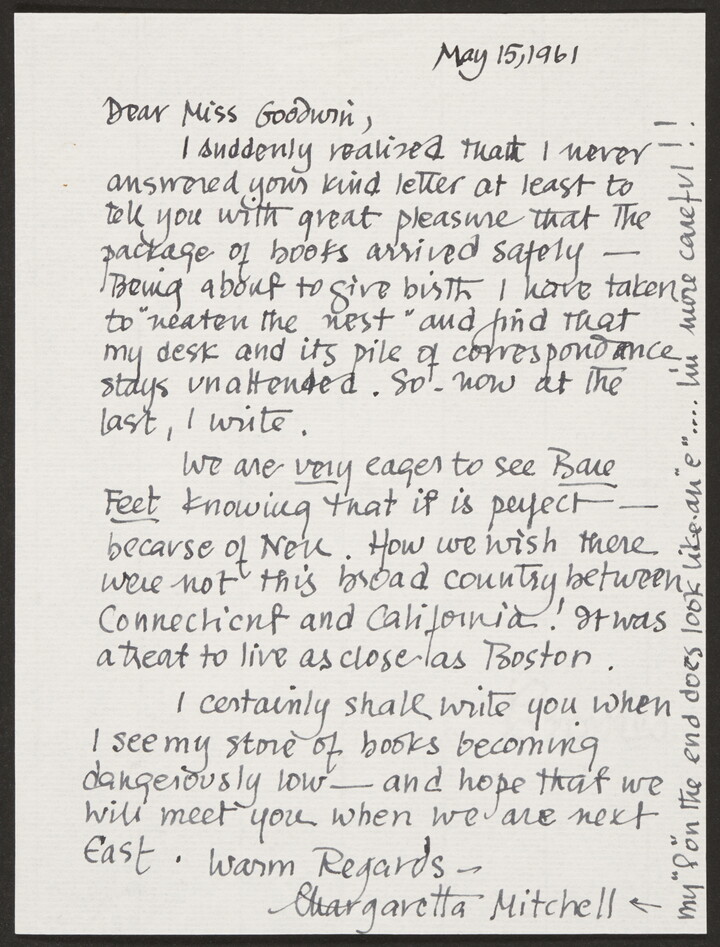 May 15, 1961
Dear Miss Goodwin,
I suddenly realized that I never
answered your kind letter at least to
tell you with great pleasure that the
package of books arrived safely —
Being about to give birth I have taken
to "neaten the nest" and find that
my desk and its pile of correspondence
stays unattended. So - now at the
last, I write.
We are very eager to see Bare
Feet knowing that it is perfect —
because of Nell. How we wish there
were not this broad country between
Connecticut and California! It was
a treat to live as close as Boston.
I certainly shall write you when
I see my store of books becoming
dangerously low — and hope that we
will meet you when we are next
East. Warm Regards —
Margaretta Mitchell ←
my "l" on the end does look like an "e".... I'm more careful!!